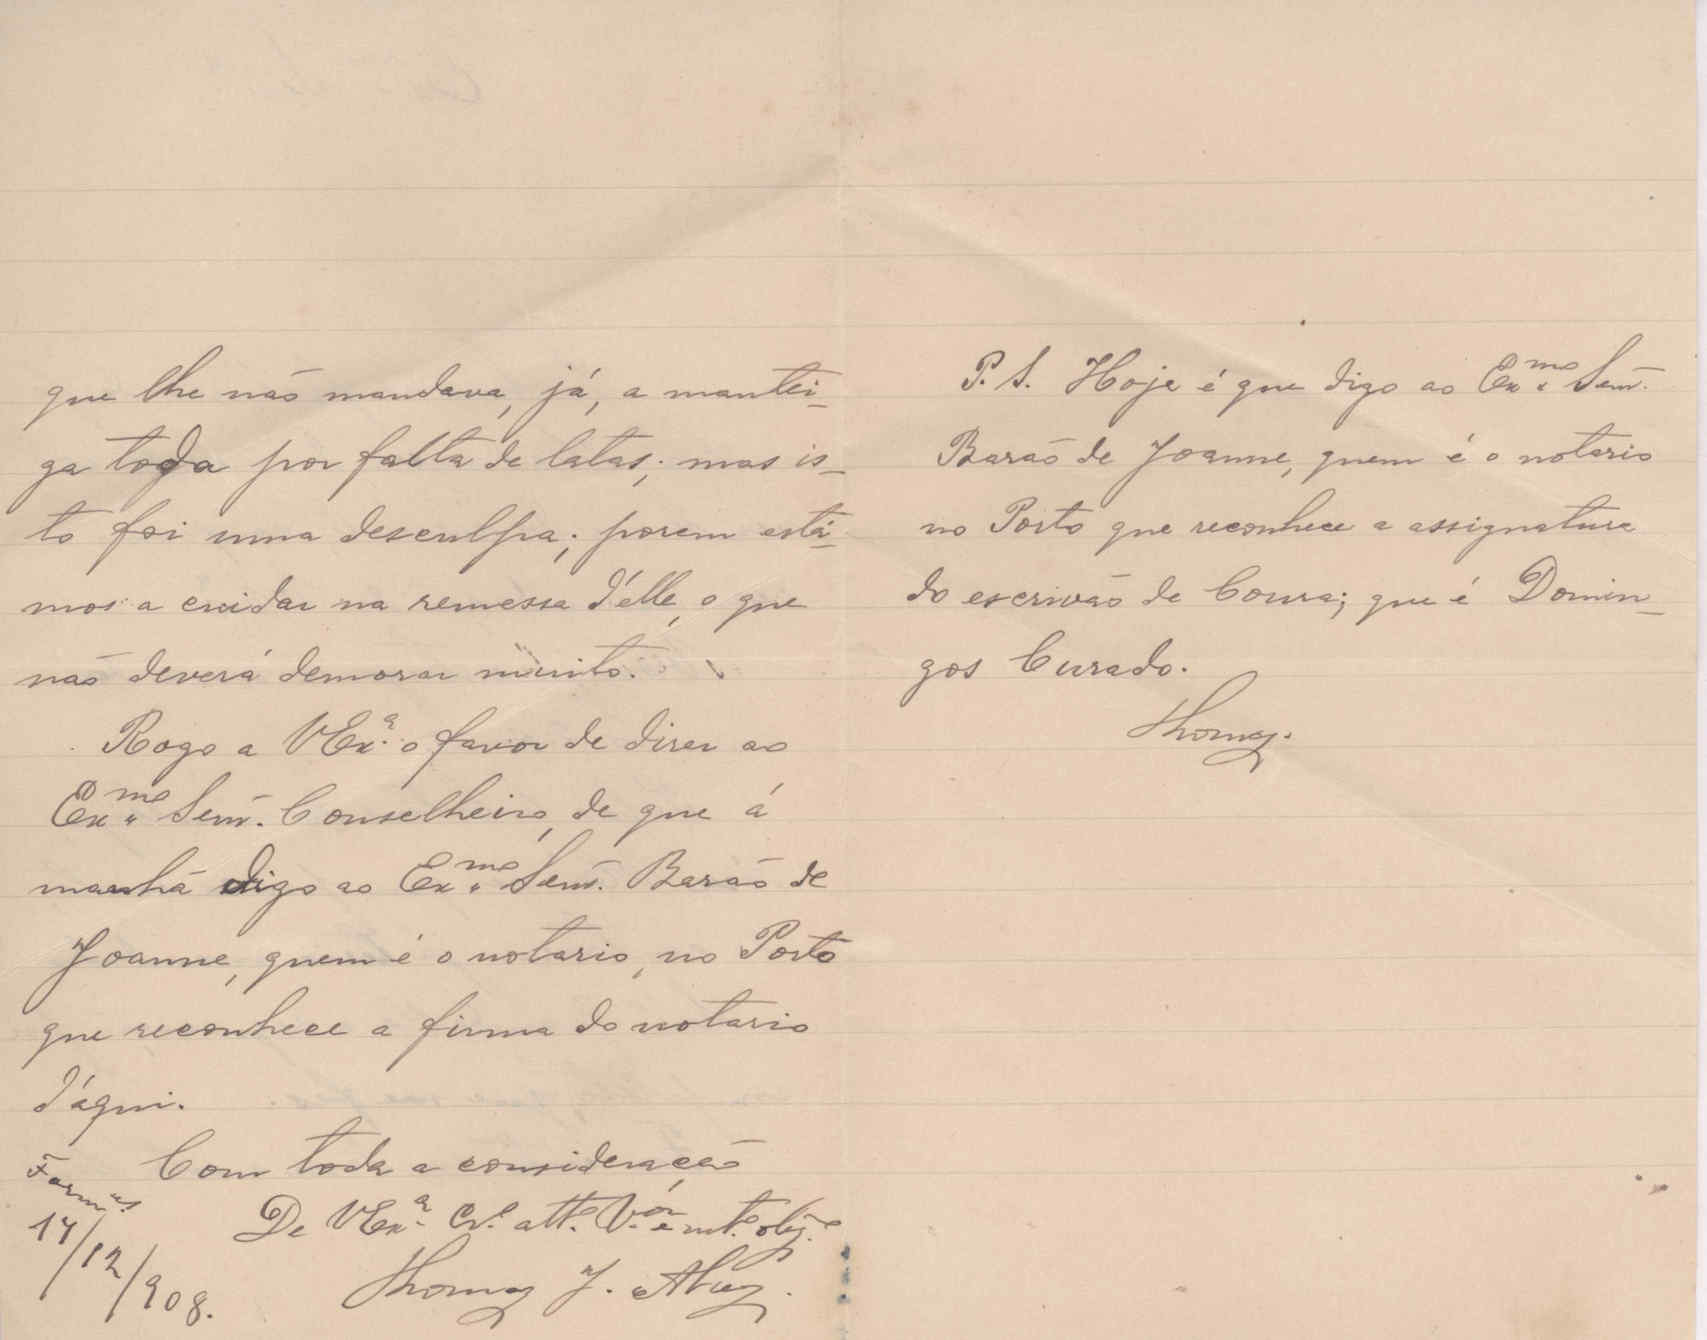 que lhe não mandava, já, a mantei-
ga toda por falta de latas; mas is-
to foi uma desculpa; porem está-
mos a cuidar na remessa d'élle, o que
não deverá demorar muito.
Rogo a VEx.ª o favor de dizer ao
Ex.mo Senr. Conselheiro, de que á
manhã digo ao Ex.mo Senr. Barão de
Joanne, quem é o notario, no Porto
que reconhece a firma do notario
d'áqui.
Com toda a consideração
De VEx.ª Cr.º att.º V.ór e mt.º obg.º
Thomaz J. Alvez.
17/12/908.
P. S. Hoje é que digo ao Ex.mo Senr.
Barão de Joanne, quem é o notario
no Porto que reconhece a assignatura
do escrivão de Coura; que é Domin-
gos Curado.
Thomaz.